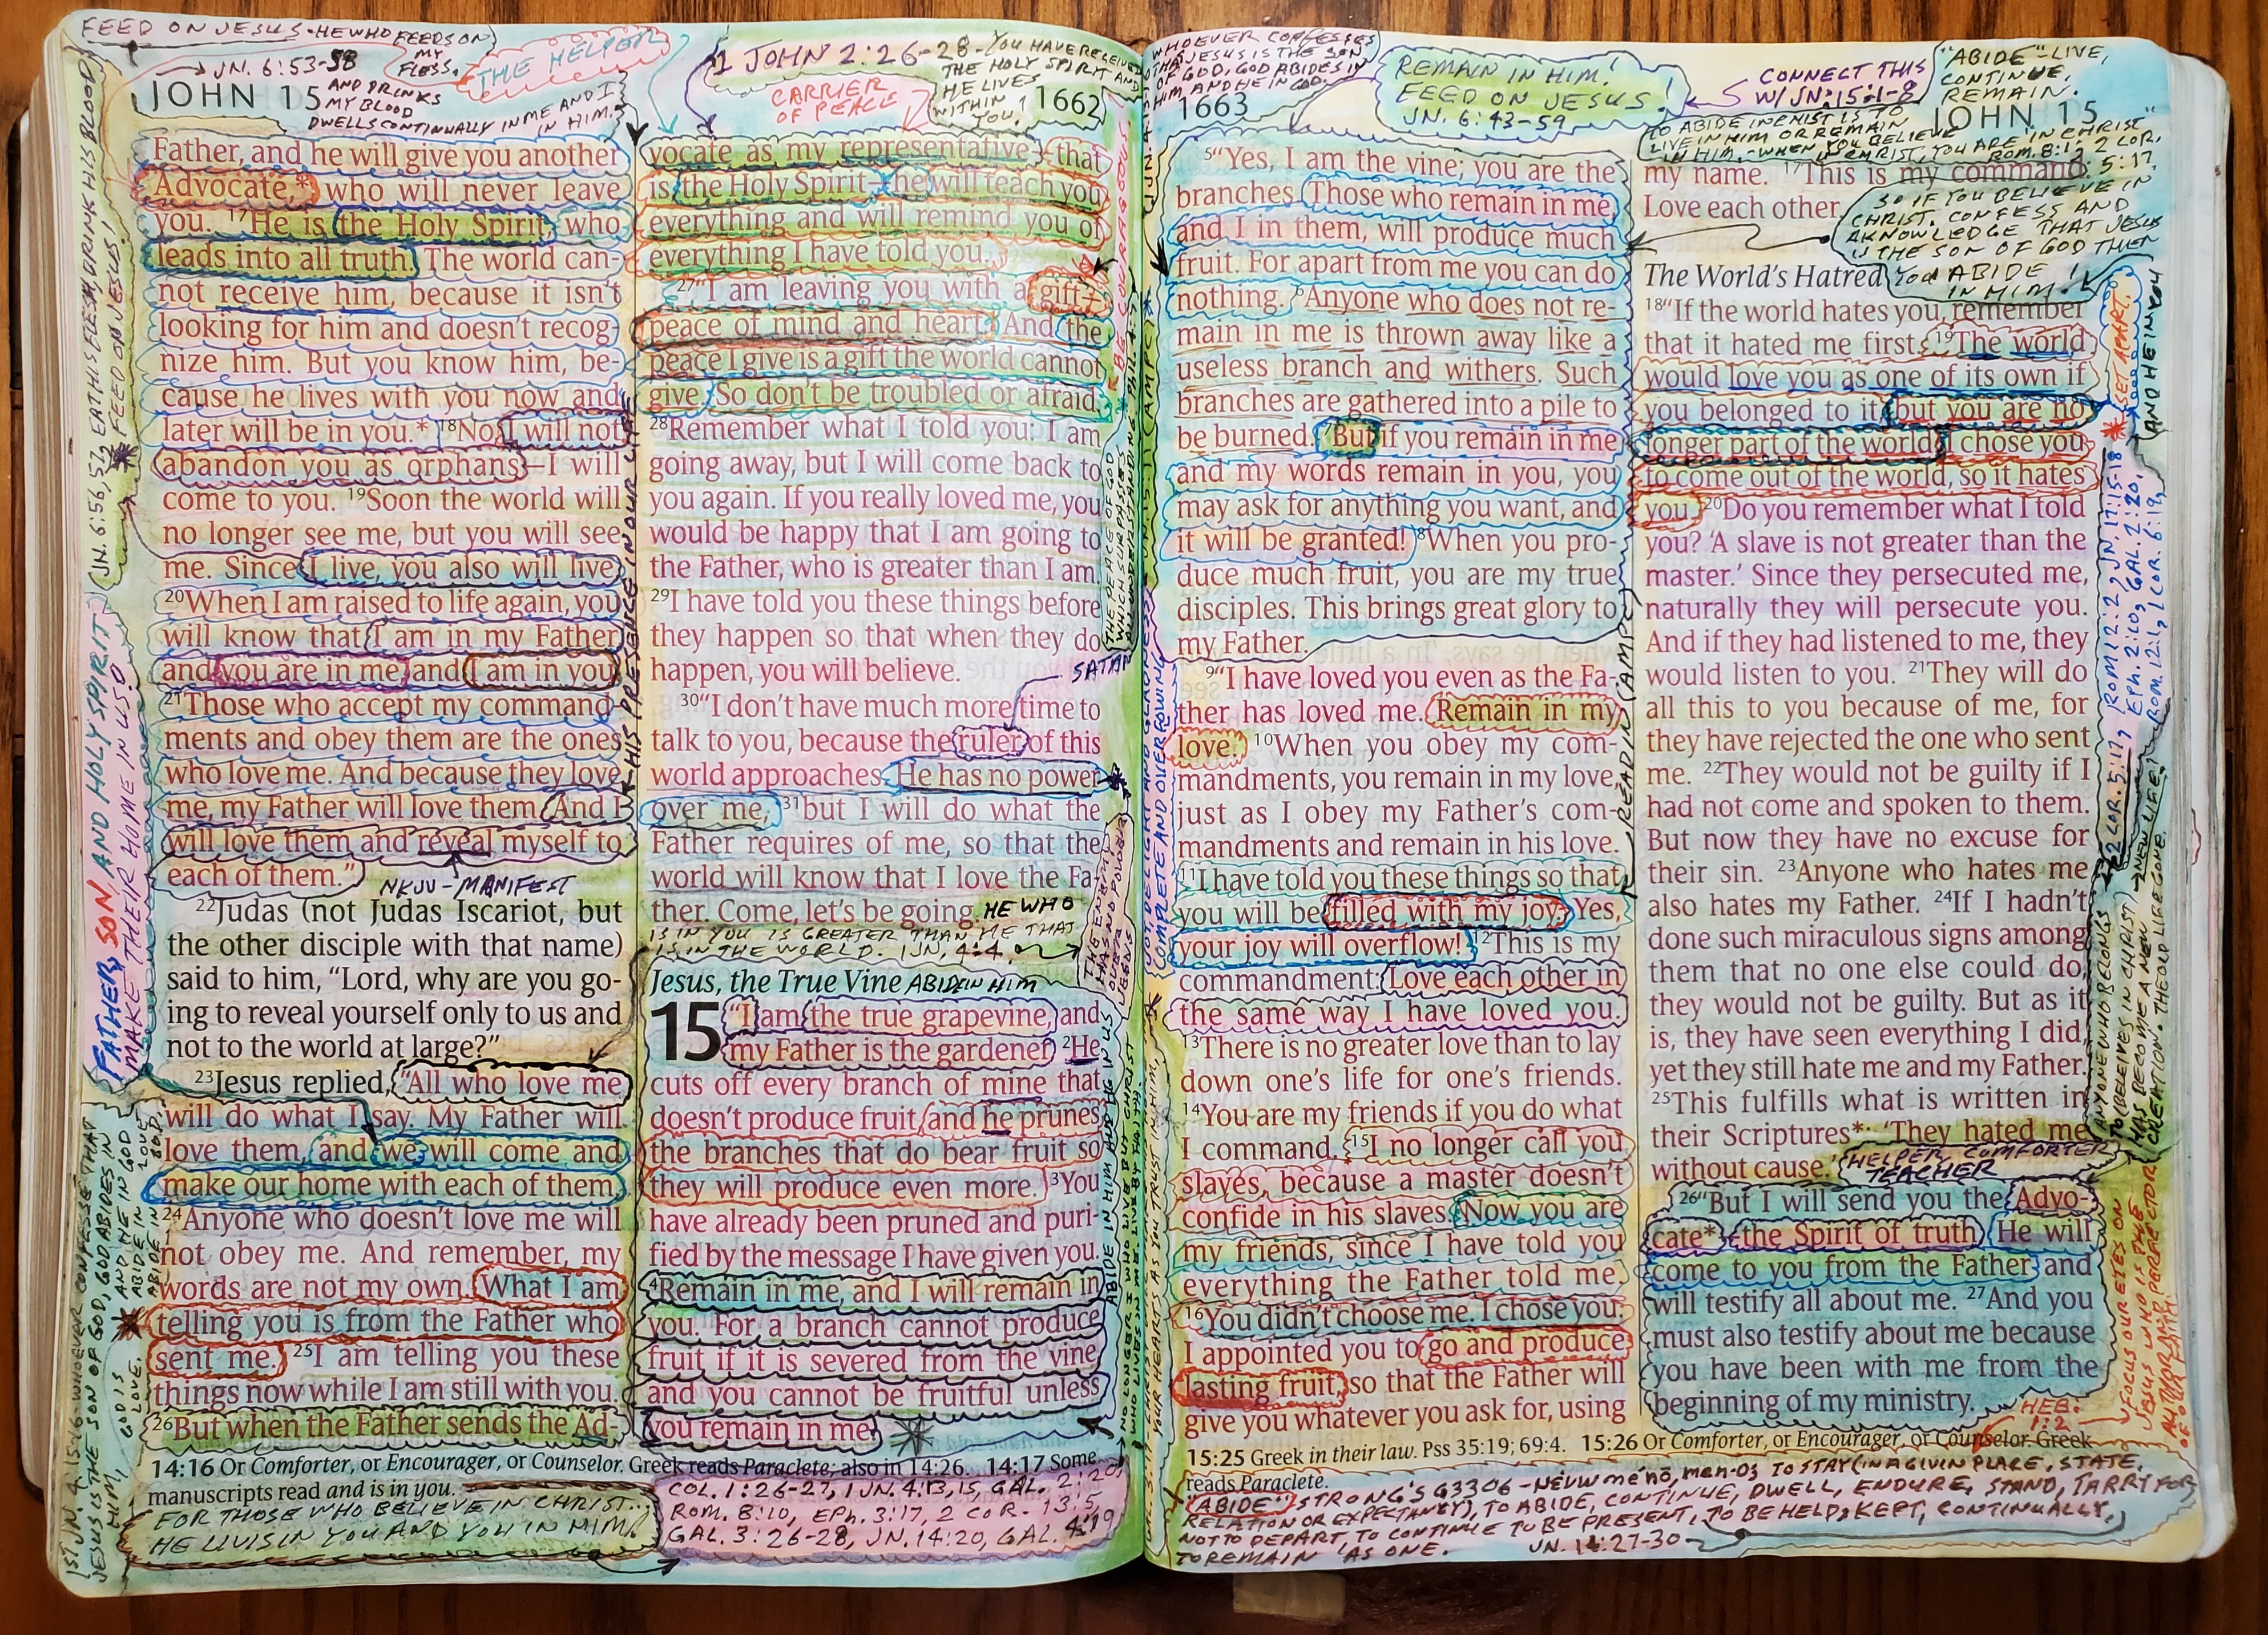 FEED ON JESUS - HE WHO FEEDS ON
MY
FLESS,
JN. 6:53-58
AND DRINKS
MY BLOOD
DWELLS CONTINUALLY IN ME AND I
IN HIM.
THE HELPER
JOHN 15
1 JOHN 2:26-28 - YOU HAVE RECEIVED
THE HOLY SPIRIT AND
HE LIVES
WITHIN
YOU!
CARRIER
OF PEACE
1662
JN. 6:56, 57, EAT HIS FLESH, DRINK HIS BLOOD
FEED ON JESUS!
FATHER, SON, AND HOLY SPIRIT
MAKE THEIR HOME IN US.
1ST JN. 4:15-16 - WHOEVER CONFESSES THAT
JESUS IS THE SON OF GOD, GOD ABIDES IN
HIM, AND HE IN GOD
GOD IS LOVE.
ABIDE IN LOVE
ABIDE IN GOD.
Father, and he will give you another
Advocate,* who will never leave
you. 17He is the Holy Spirit, who
leads into all truth. The world can-
not receive him, because it isn't
looking for him and doesn't recog-
nize him. But you know him, be-
cause he lives with you now and
later will be in you.* 18No, I will not
abandon you as orphans—I will
come to you. 19Soon the world will
no longer see me, but you will see
me. Since I live, you also will live.
20When I am raised to life again, you
will know that I am in my Father,
and you are in me, and I am in you.
21Those who accept my command-
ments and obey them are the ones
who love me. And because they love
me, my Father will love them. And I
will love them and reveal myself to
each of them."
NKJV - MANIFEST
HIS PRESENCE IN OUR LIFE
22Judas (not Judas Iscariot, but
the other disciple with that name)
said to him, "Lord, why are you go-
ing to reveal yourself only to us and
not to the world at large?"
23Jesus replied, "All who love me
will do what I say. My Father will
love them, and we will come and
make our home with each of them.
24Anyone who doesn't love me will
not obey me. And remember, my
words are not my own. What I am
telling you is from the Father who
sent me. 25I am telling you these
things now while I am still with you.
26But when the Father sends the Ad-
vocate as my representative—that
is, the Holy Spirit—he will teach you
everything and will remind you of
everything I have told you.
27"I am leaving you with a gift—
peace of mind and heart. And the
peace I give is a gift the world cannot
give. So don't be troubled or afraid.
28Remember what I told you: I am
going away, but I will come back to
you again. If you really loved me, you
would be happy that I am going to
the Father, who is greater than I am.
29I have told you these things before
they happen so that when they do
happen, you will believe.
SATAN
30"I don't have much more time to
talk to you, because the ruler of this
world approaches. He has no power
over me, 31but I will do what the
Father requires of me, so that the
world will know that I love the Fa-
ther. Come, let's be going. HE WHO
IS IN YOU IS GREATER THAN HE THAT
IS IN THE WORLD. 1 JN. 4:4
Jesus, the True Vine ABIDE IN HIM
15 "I am the true grapevine, and
my Father is the gardener. 2He
cuts off every branch of mine that
doesn't produce fruit, and he prunes
the branches that do bear fruit so
they will produce even more. 3You
have already been pruned and puri-
fied by the message I have given you.
4Remain in me, and I will remain in
you. For a branch cannot produce
fruit if it is severed from the vine,
and you cannot be fruitful unless
you remain in me.
14:16 Or Comforter, or Encourager, or Counselor. Greek reads Paraclete; also in 14:26. 14:17 Some
manuscripts read and is in you.
FOR THOSE WHO BELIEVE IN CHRIST...
HE LIVIS IN YOU AND YOU IN HIM!
COL. 1:26-27, 1 JN. 4:13, 15, GAL. 2:20,
ROM. 8:10, EPH. 3:17, 2 COR. 13:5,
GAL. 3:26-28, JN. 14:20, GAL. 4:19
WHOEVER CONFESSES
THAT JESUS IS THE SON
OF GOD, GOD ABIDES IN
HIM, AND HE IN GOD.
REMAIN IN HIM!
FEED ON JESUS!
JN. 6:43-59
CONNECT THIS
W/ JN. 15:1-8
"ABIDE" - LIVE,
CONTINUE,
REMAIN.
1663
JOHN 15
TO ABIDE IN CHRIST IS TO
LIVE IN HIM OR REMAIN
IN HIM. - WHEN YOU BELIEVE
IN CHRIST, YOU ARE "IN CHRIST"
ROM. 8:1, 2 COR.
5:17
5"Yes, I am the vine; you are the
branches. Those who remain in me,
and I in them, will produce much
fruit. For apart from me you can do
nothing. 6Anyone who does not re-
main in me is thrown away like a
useless branch and withers. Such
branches are gathered into a pile to
be burned. 7But if you remain in me
and my words remain in you, you
may ask for anything you want, and
it will be granted! 8When you pro-
duce much fruit, you are my true
disciples. This brings great glory to
my Father.
9"I have loved you even as the Fa-
ther has loved me. Remain in my
love. 10When you obey my com-
mandments, you remain in my love,
just as I obey my Father's com-
mandments and remain in his love.
11I have told you these things so that
you will be filled with my joy. Yes,
your joy will overflow! 12This is my
commandment: Love each other in
the same way I have loved you.
13There is no greater love than to lay
down one's life for one's friends.
14You are my friends if you do what
I command. 15I no longer call you
slaves, because a master doesn't
confide in his slaves. Now you are
my friends, since I have told you
everything the Father told me.
16You didn't choose me. I chose you.
I appointed you to go and produce
lasting fruit, so that the Father will
give you whatever you ask for, using
READ IN (AMPC)
my name. 17This is my command:
Love each other.
SO IF YOU BELIEVE IN
CHRIST, CONFESS AND
AKNOWLEDGE THAT JESUS
IS THE SON OF GOD THEN
YOU ABIDE
IN HIM!
The World's Hatred
18"If the world hates you, remember
that it hated me first. 19The world
would love you as one of its own if
you belonged to it, but you are no
longer part of the world. I chose you
to come out of the world, so it hates
you. 20Do you remember what I told
you? 'A slave is not greater than the
master.' Since they persecuted me,
naturally they will persecute you.
And if they had listened to me, they
would listen to you. 21They will do
all this to you because of me, for
they have rejected the one who sent
me. 22They would not be guilty if I
had not come and spoken to them.
But now they have no excuse for
their sin. 23Anyone who hates me
also hates my Father. 24If I hadn't
done such miraculous signs among
them that no one else could do,
they would not be guilty. But as it
is, they have seen everything I did,
yet they still hate me and my Father.
25This fulfills what is written in
their Scriptures*: 'They hated me
without cause.'
HELPER, COMFORTER
TEACHER
26"But I will send you the Advo-
cate*—the Spirit of truth. He will
come to you from the Father and
will testify all about me. 27And you
must also testify about me because
you have been with me from the
beginning of my ministry.
SET APART.
AND HE IN YOU
ROM. 12:2, JN. 17:15-18
EPH. 2:10, GAL. 2:20,
ROM. 12:1, 1 COR. 6:19,
2 COR. 5:17,
NEW LIFE!
ANYONE WHO BELONGS
TO (BELIEVES IN CHRIST)
HAS BECOME A NEW
CREATION. THE OLD LIFE GONE.
FOCUS OUR EYES ON
JESUS WHO IS THE
AUTHOR AND PERFECTOR
OF OUR FAITH.
HEB.
1:2
15:25 Greek in their law. Pss 35:19; 69:4. 15:26 Or Comforter, or Encourager, or Counselor. Greek
reads Paraclete.
"ABIDE" STRONG'S G3306 - TO STAY (IN A GIVEN PLACE, STATE,
RELATION OR EXPECTANCY), TO ABIDE, CONTINUE, DWELL, ENDURE, STAND, TARRY FOR
NOT TO DEPART TO CONTINUE TO BE PRESENT, TO BE HELD, KEPT, CONTINUALLY,
TO REMAIN AS ONE.
JN. 14:27-30